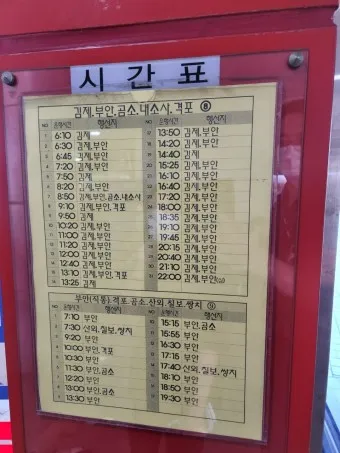 시간표
김제,부안,곰소,내소사,격포 ⑧
NO 운행시간 행선지
6:10 김제
6:30 김제,부안
6:45 김제,부안
7:20 김제,부안
7:50 김제
8:20 김제,부안
8:50 김제,부안,곰소,내소사
9:10 김제,부안,격포
9:50 김제
10:20 김제,부안
11:00 김제,부안
11:20 김제,부안
12:00 김제,부안
12:40 김제,부안
13:10 김제,부안,격포
13:25 김제
NO 운행시간 행선지
13:50 김제,부안
14:20 김제,부안
14:40 김제
15:25 김제,부안
16:10 김제,부안
16:40 김제,부안
17:20 김제,부안
18:00 김제,부안
18:35 김제,부안
19:10 김제,부안
19:45 김제,부안
20:15 김제,부안
20:40 김제,부안
21:10 김제,부안
22:00 김제,부안
부안(직통),격포,곰소,산외,칠보,쌍지 ⑨
NO 운행시간 행선지
7:10 부안
7:30 산외,칠보,쌍지
9:20 부안
10:00 부안,격포
10:30 부안
11:30 부안,곰소
12:20 부안
13:00 부안,곰소
13:30 부안
NO 운행시간 행선지
15:15 부안,곰소
15:55 부안
16:30 부안
17:15 부안
17:40 산외,칠보,쌍지
18:10 부안
18:50 부안
19:30 부안